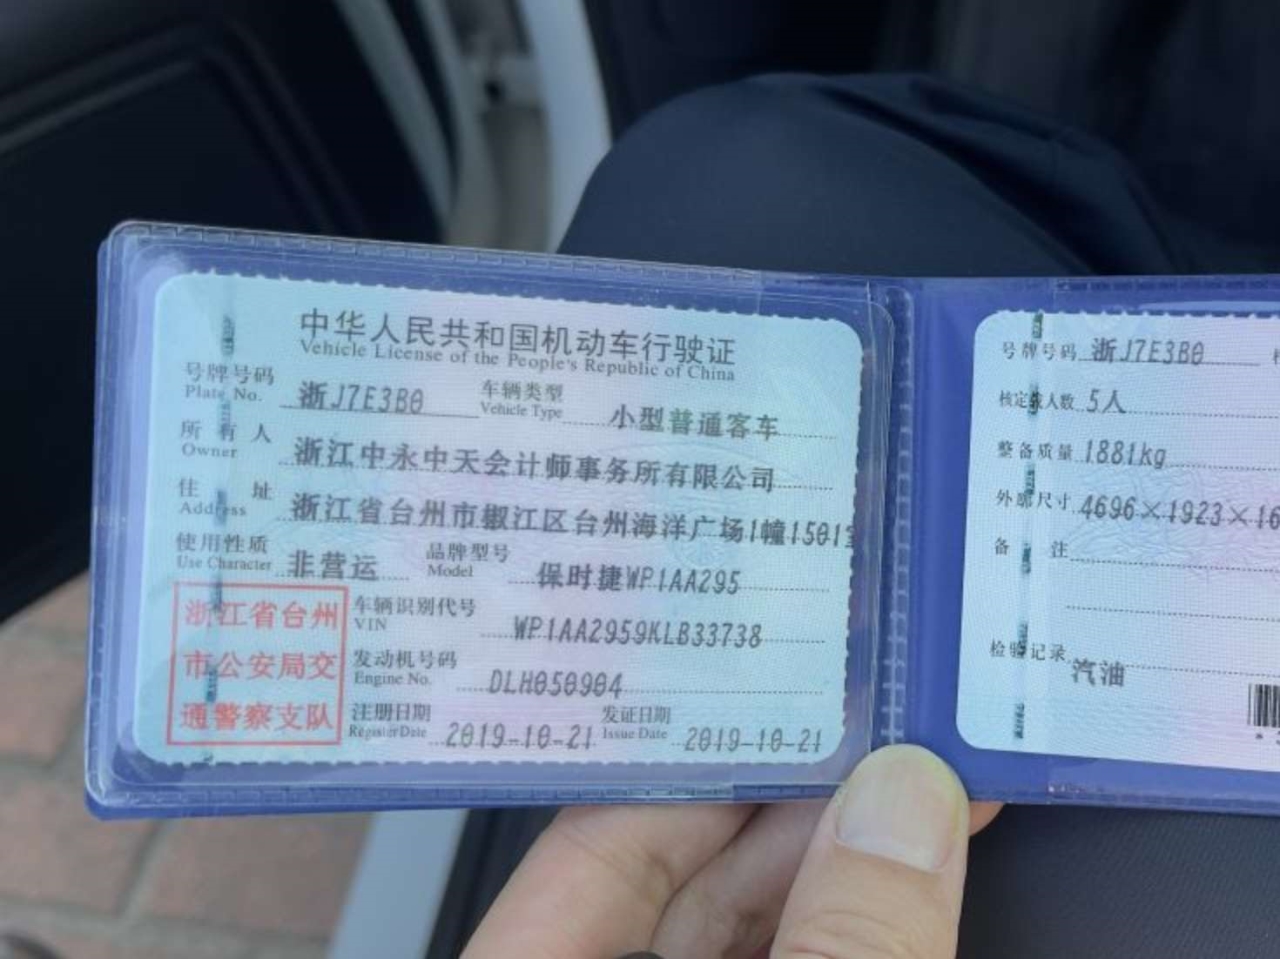 中华人民共和国机动车行驶证
Vehicle License of the People's Republic of China
号牌号码 浙J7E3B0 车辆类型 小型普通客车
Plate No. Vehicle Type
所有人 浙江中永中天会计师事务所有限公司
Owner
住址 浙江省台州市椒江区台州海洋广场1幢1501室
Address
使用性质 非营运 品牌型号 保时捷WP1AA295
Use Character Model
浙江省台州
市公安局交
通警察支队
车辆识别代号 WP1AA2959KLB33738
VIN
发动机号码 DLH050904
Engine No.
注册日期 2019-10-21 发证日期 2019-10-21
Register Date Issue Date
号牌号码 浙J7E3B0
核定载人数 5人
整备质量 1881kg
外廓尺寸 4696×1923×16
备注
检验记录 汽油